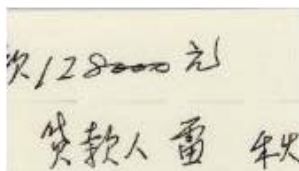 款128000元
贷款人 雷